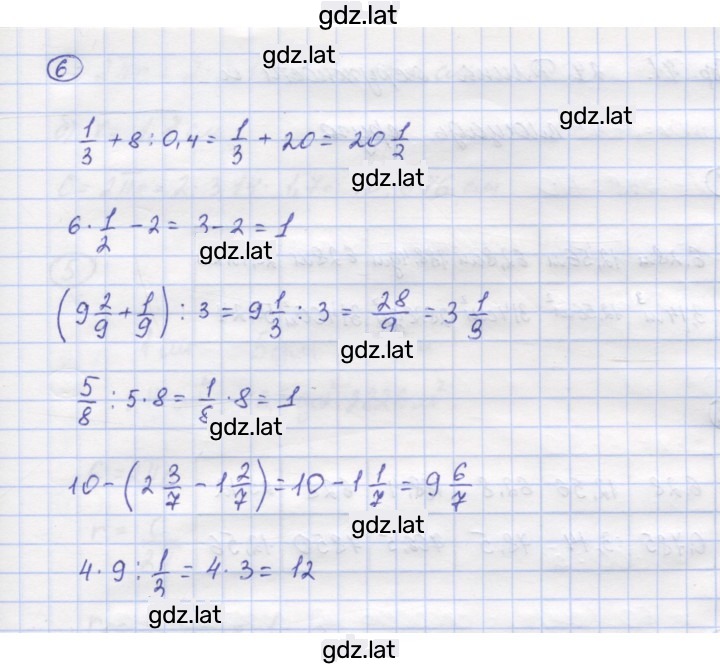 gdz.lat
6
gdz.lat
gdz.lat
1/3 + 8 : 0,4 = 1/3 + 20 = 20 1/2
gdz.lat
6 · 1/2 - 2 = 3 - 2 = 1
gdz.lat
(9 2/9 + 1/9) : 3 = 9 1/3 : 3 = 28/9 = 3 1/9
gdz.lat
5/8 : 5 · 8 = 1/8 · 8 = 1
gdz.lat
10 - (2 3/7 - 1 2/7) = 10 - 1 1/7 = 9 6/7
gdz.lat
4 · 9 : 1/3 = 4 · 3 = 12
gdz.lat
gdz.lat